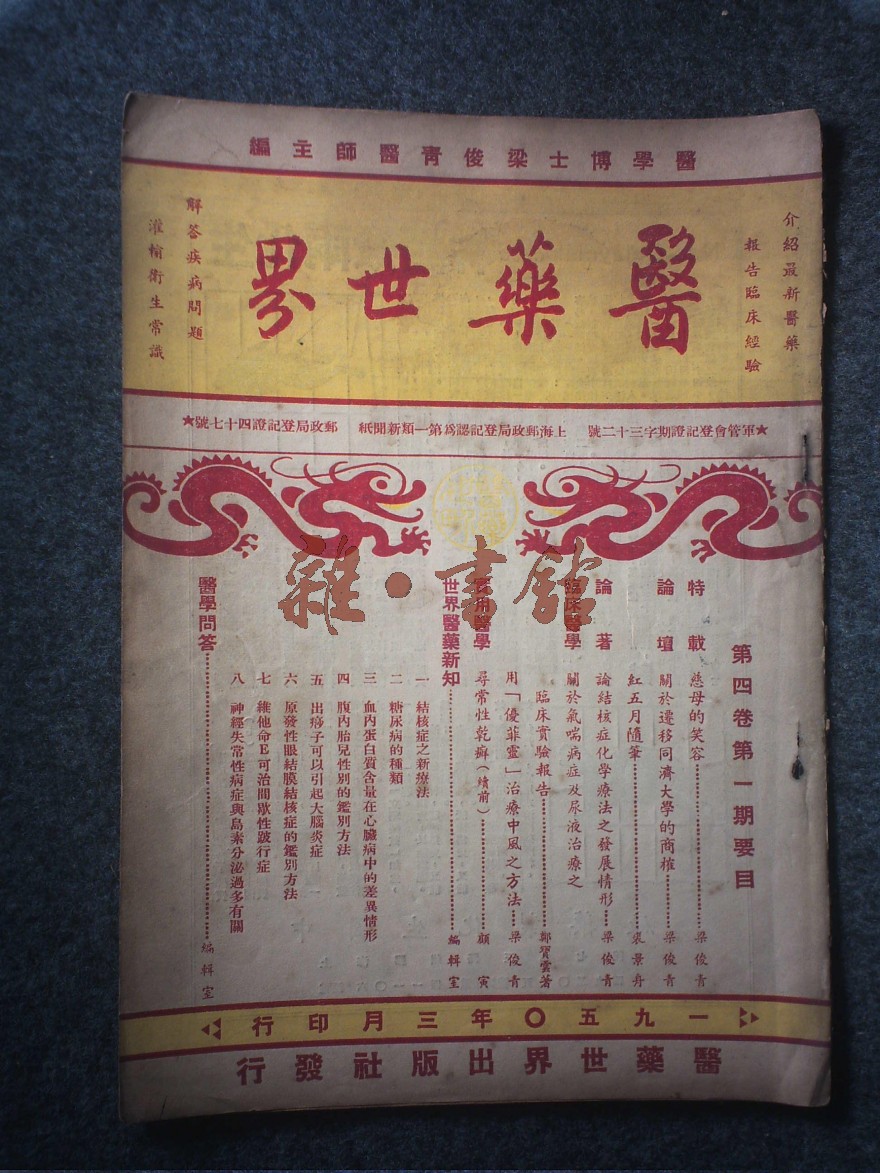 醫學博士梁俊青醫師主編
介紹最新醫藥
報告臨床經驗
醫藥世界
解答疾病問題
灌輸衛生常識
★軍管會登記證期字三十二號 上海郵政局登記認爲第一類新聞紙 郵政局登記證四十七號★
雜·書館
第四卷第一期要目
特載 慈母的笑容……梁俊青
論壇 關於遷移同濟大學的商榷……梁俊青
紅五月隨筆……裘景舟
論著 論結核症化學療法之發展情形……梁俊青
臨床醫學 關於氣喘病症及尿液治療之
臨床實驗報告……鄭寶雲著
用「優菲靈」治療中風之方法……梁俊青
實用醫學 尋常性乾癬(續前)……顧寅
世界醫藥新知……編輯室
一 結核症之新療法
二 糖尿病的種類
三 血內蛋白質含量在心臟病中的差異情形
四 腹內胎兒性別的鑑別方法
五 出痧子可以引起大腦炎症
六 原發性眼結膜結核症的鑑別方法
七 維他命E可治間歇性跛行症
八 神經失常性病症與島素分泌過多有關
醫學問答……編輯室
一九五〇年三月印行
醫藥世界出版社發行